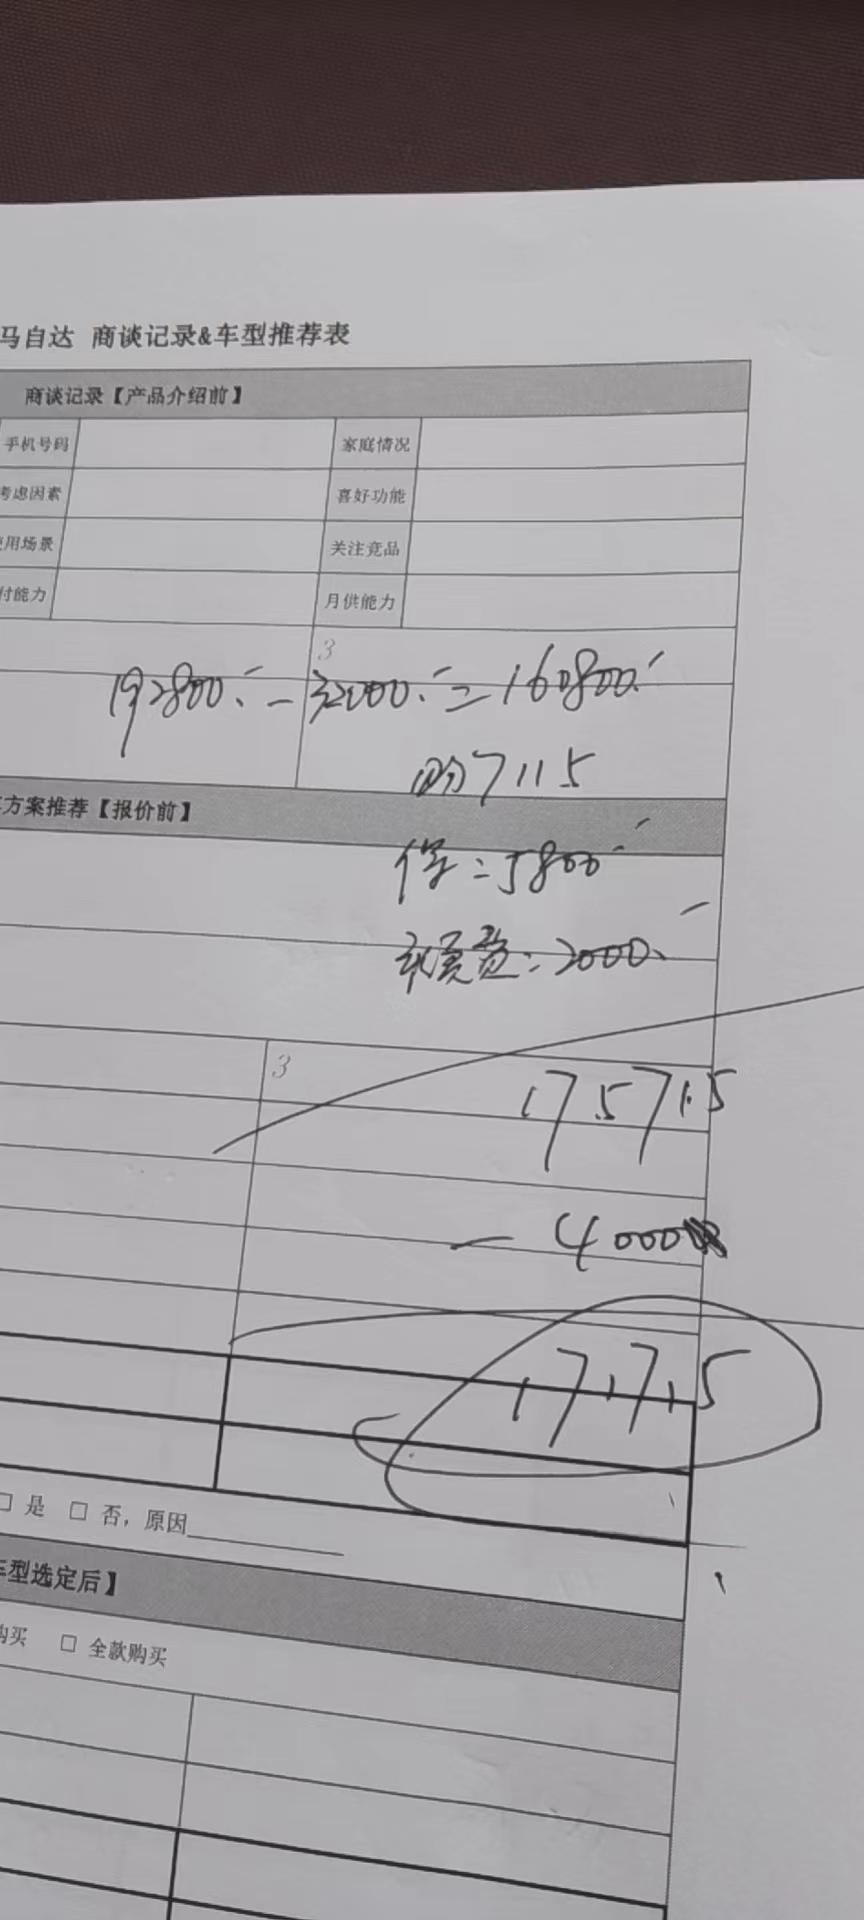 马自达 商谈记录&车型推荐表
商谈记录【产品介绍前】
手机号码 家庭情况
考虑因素 喜好功能
使用场景 关注竞品
付能力 月供能力
3
192800.- - 32000.- = 160800.-
购7115
保:5800.-
2000.-
方案推荐【报价前】
3
175715
- 4000
171715
□ 是 □ 否，原因
车型选定后】
购买 □ 全款购买